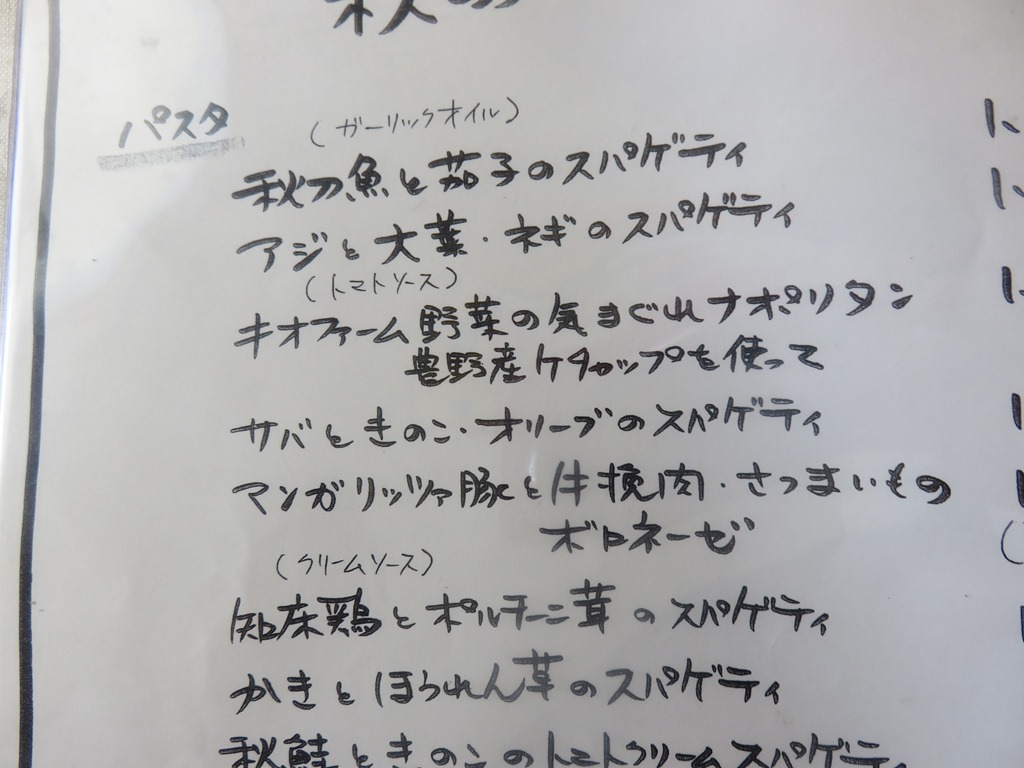 秋の
パスタ
(ガーリックオイル)
秋刀魚と茄子のスパゲティ
アジと大葉・ネギのスパゲティ
(トマトソース)
キオファーム野菜の気まぐれナポリタン
豊野産ケチャップを使って
サバときのこ・オリーブのスパゲティ
マンガリッツァ豚と牛挽肉・さつまいもの
ボロネーゼ
(クリームソース)
知床鶏とポルチーニ茸のスパゲティ
かきとほうれん草のスパゲティ
秋鮭ときのこのトマトクリームスパゲティ